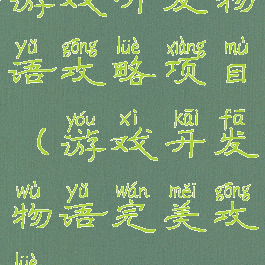 游戏开发物
yǔ gōng lüè xiàng mù
语攻略项目
yóu xì kāi fā
（游戏开发
wù yǔ wán měi gōng
物语完美攻
lüè